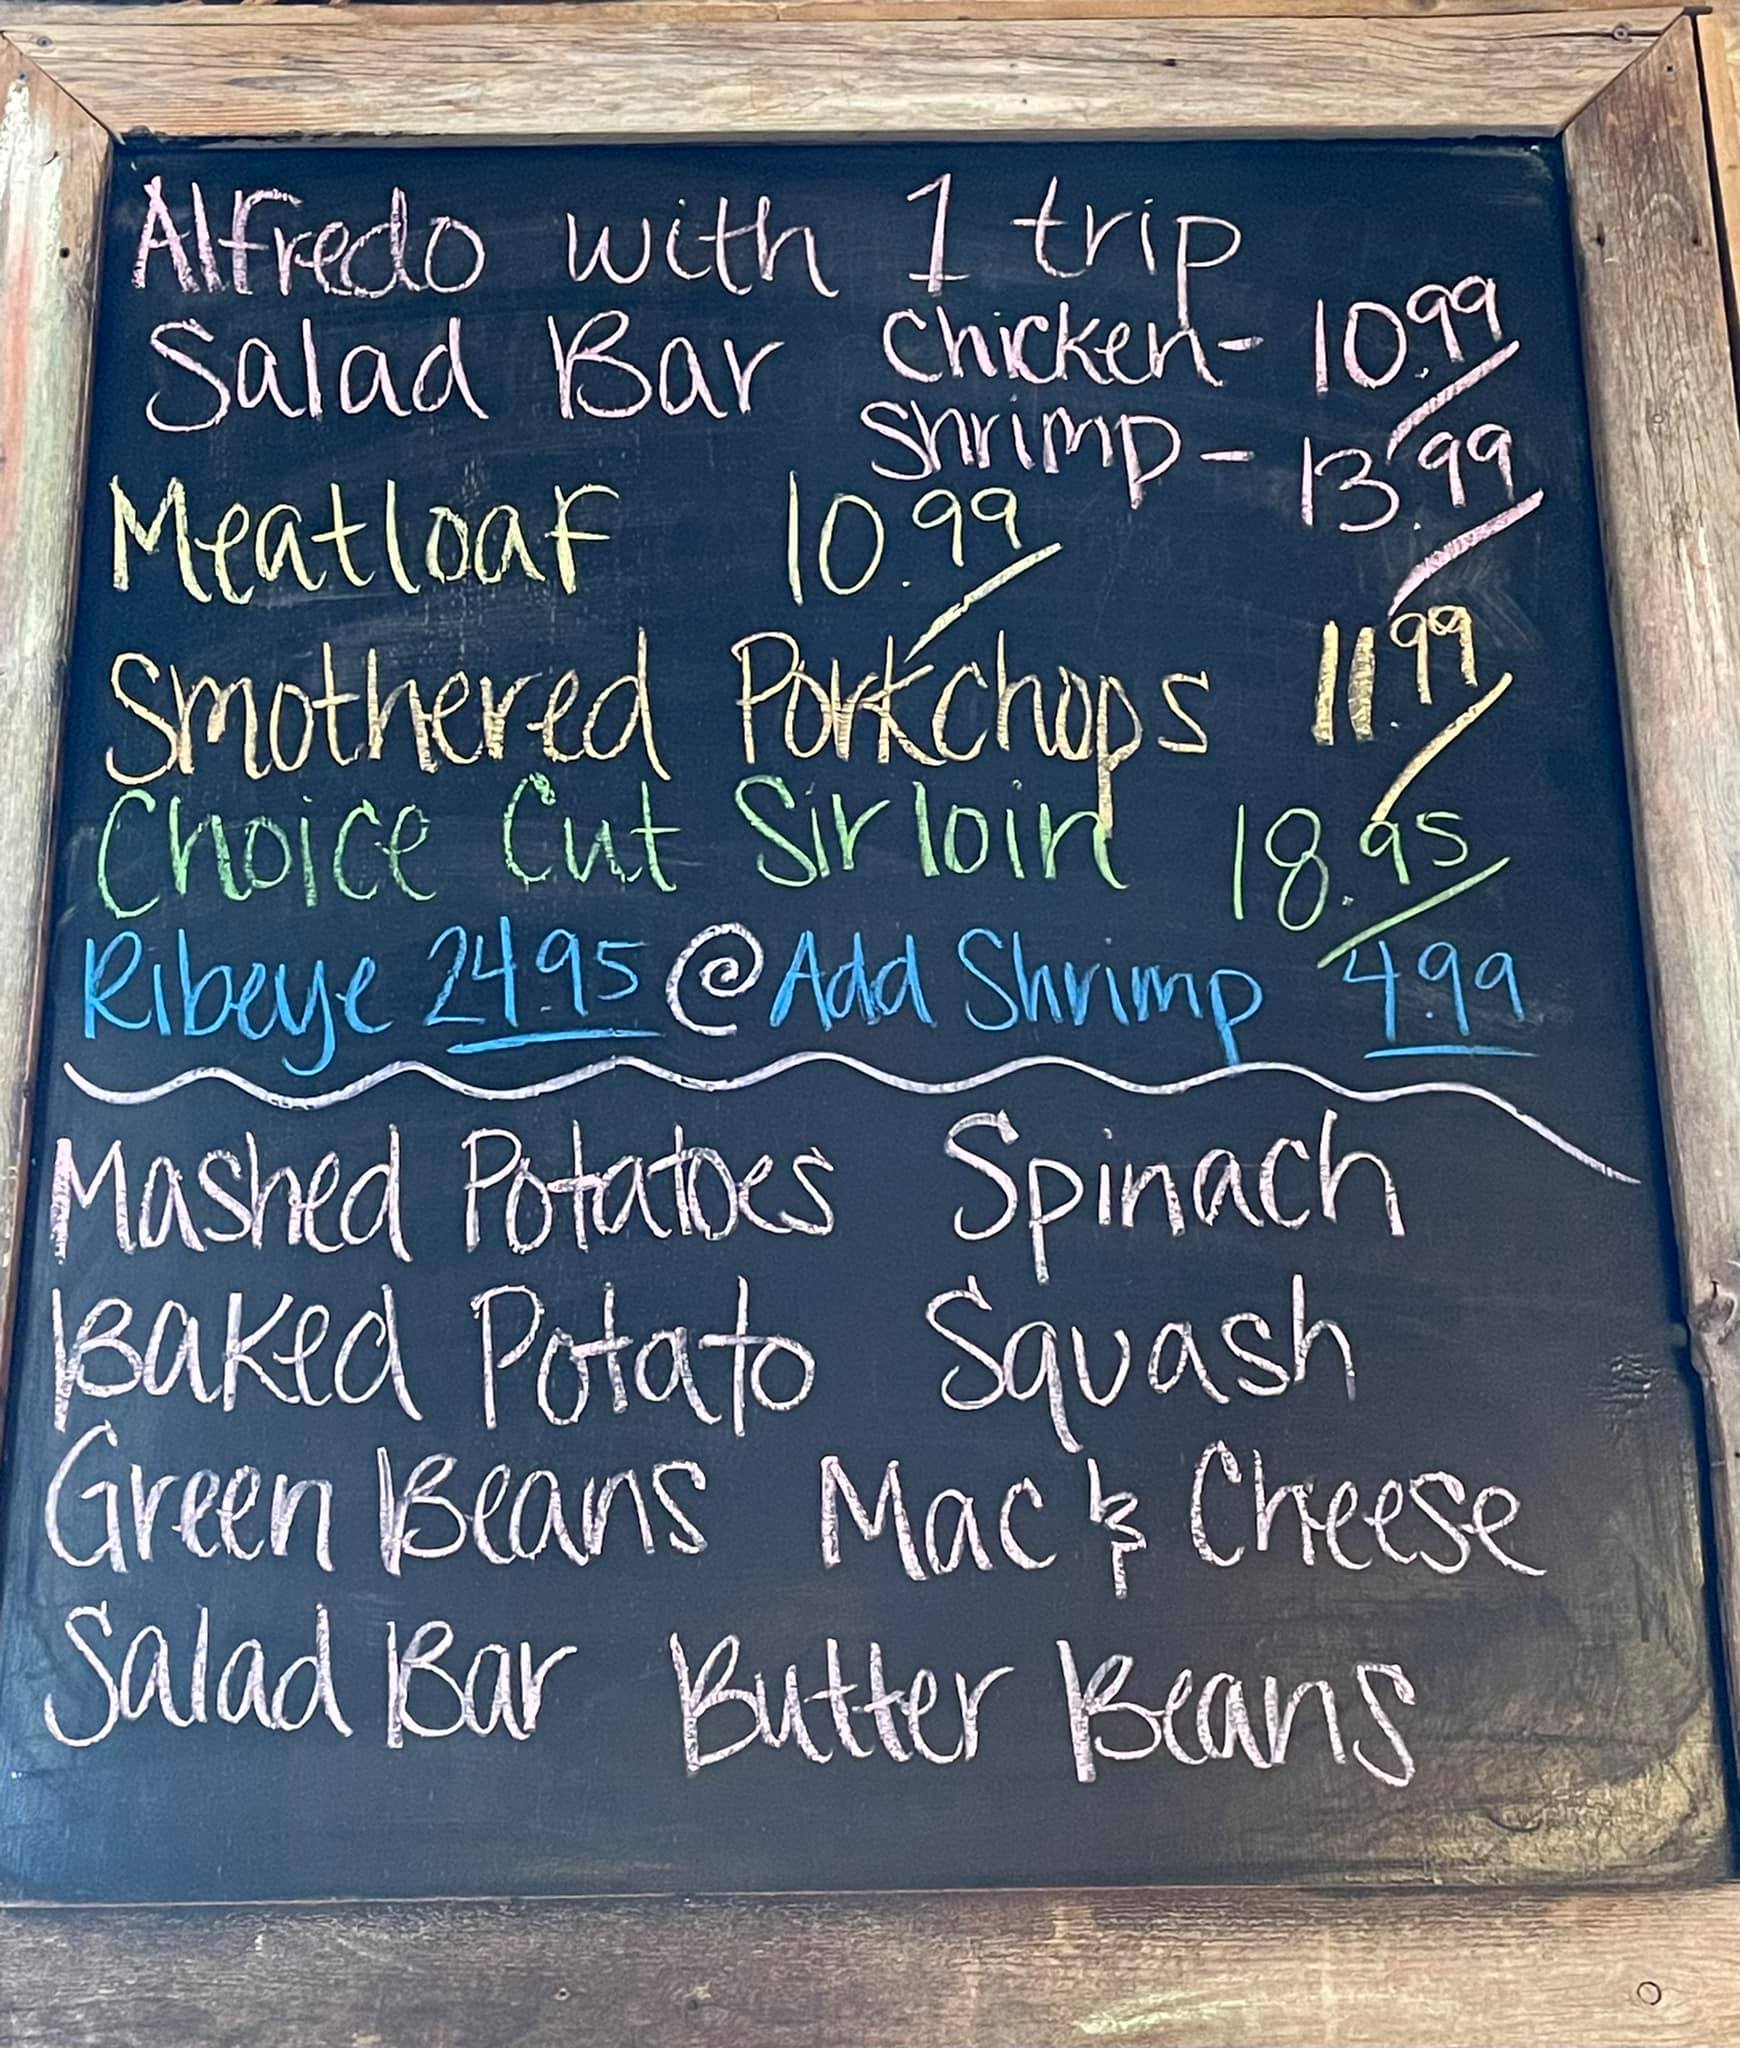 Alfredo with 1 trip
Salad Bar Chicken- 10.99
Shrimp- 13.99
Meatloaf 10.99
Smothered Porkchops 11.99
Choice Cut Sirloin 18.95
Ribeye 24.95 @ Add Shrimp 4.99
Mashed Potatoes Spinach
Baked Potato Squash
Green Beans Mac & Cheese
Salad Bar Butter Beans